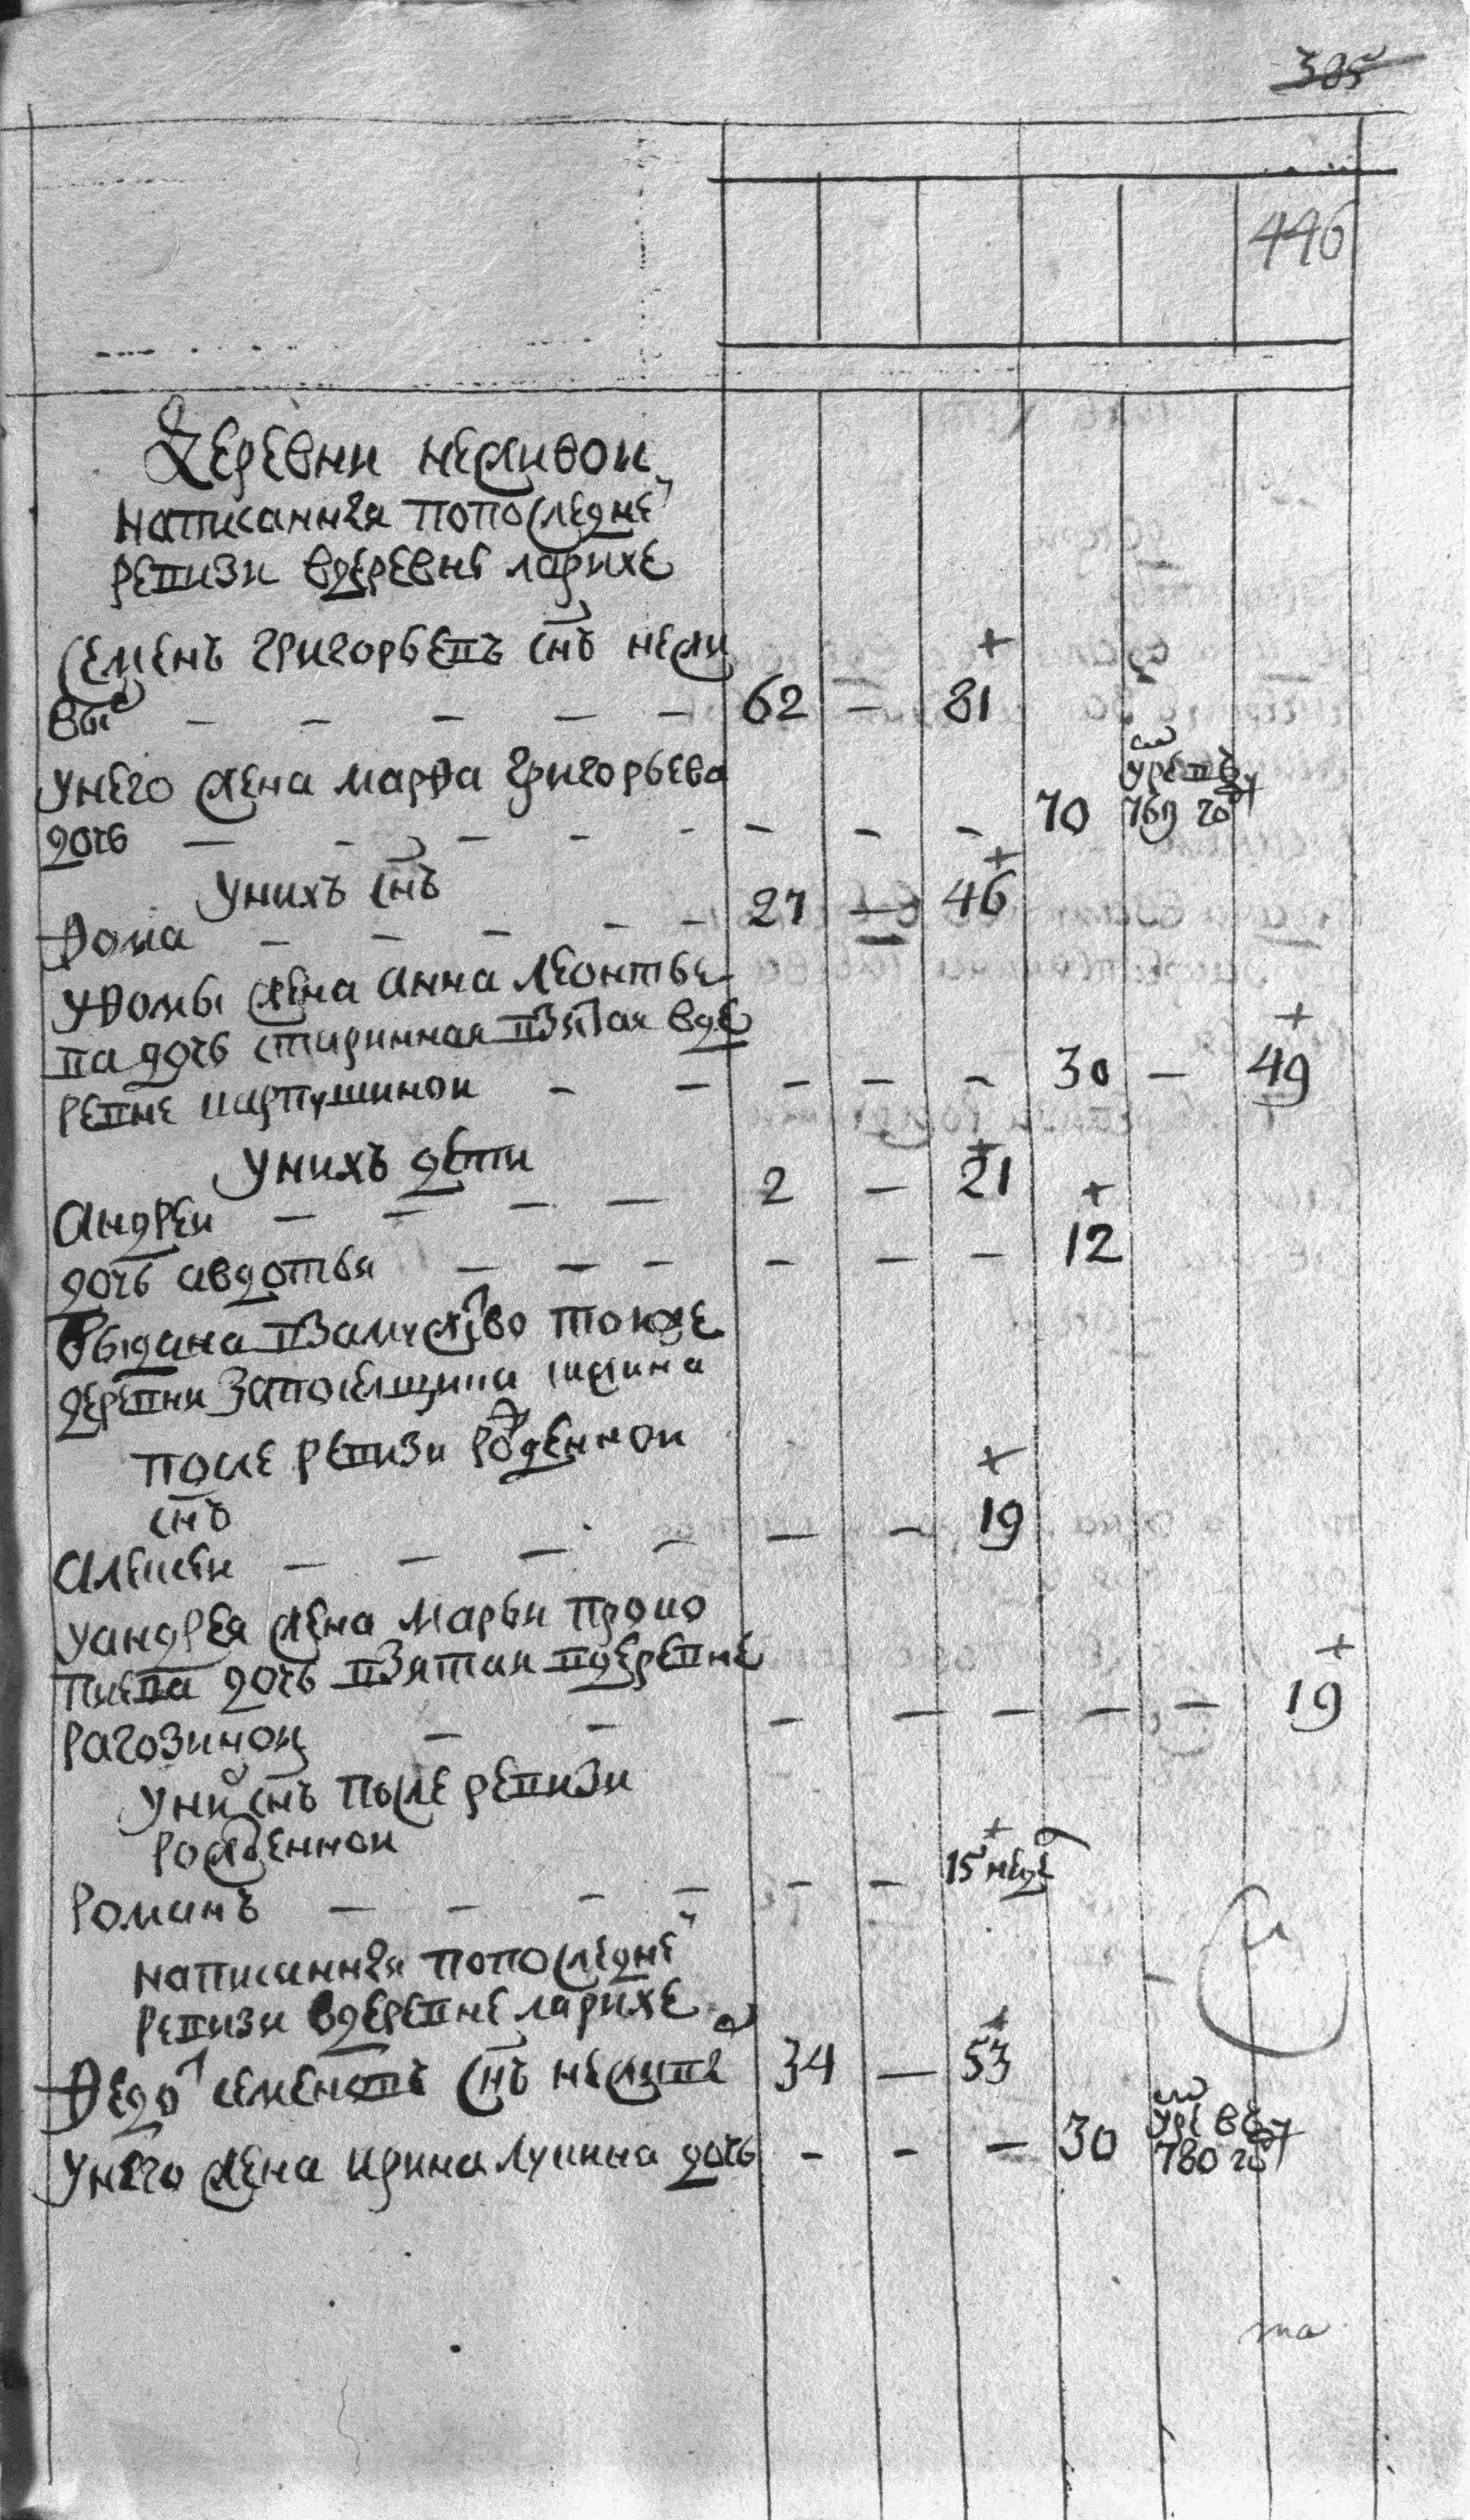 385
446
Деревни неживои
написанныя попоследне
ревизи вдеревне ларихе
Семенъ григорьевъ снъ нежи
вы 62 — 81
унего жена марфа григорьева
дочь 70 769 го
унихъ снъ
Фома 27 — 46
уфомы жена анна леонтье
ва дочь старинная взятая вде
ревне карпушиной 30 — 49
унихъ дети
Андреи 2 — 21
дочь авдотья 12
выдана взамужство тоюже
деревни
после ревизи рожденнои
снъ
Алексеи 19
уандрея жена марья проко
пиева дочь взятая вдеревне
рагозинои 19
уни снъ после ревизи
рожденнои
Романъ 15 неде
написанныя попоследне
ревизи вдеревне ларихе
Федо семеновъ снъ неживо 34 — 53
унего жена ирина лукина дочь 30 780 го
та